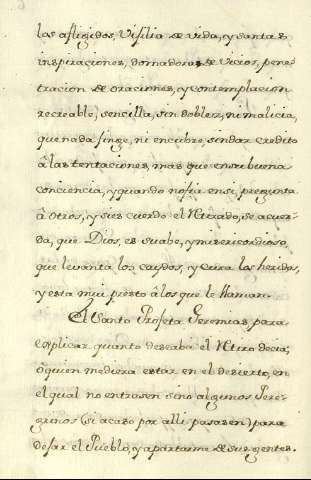 los afligidos, Vigilia de vida, y santas
inspiraciones, domadora de vicios, pene
tracion de oraciones, y contemplacion
recreable, sencilla, sin doblez, ni malicia,
que nada finge, ni encubre, sin dar credito
â las tentaciones, mas que en su buena
conciencia, y quando no fia en si, pregunta
â otros, y si es cuerdo el Retirado, se acuer-
da, que Dios, es suabe, y misericordioso,
que levanta los caydos, y cura los heridos,
y esta mui presto â los que le llaman.
El Santo Profeta Geremias, para
explicar quanto deseaba el Retiro decia;
ô quien me diera estar en el desierto, en
el qual no entrasen sino algunos Pere-
grinos (si acaso por alli pasasen) para
dejar el Pueblo, y apartarme de sus gentes.